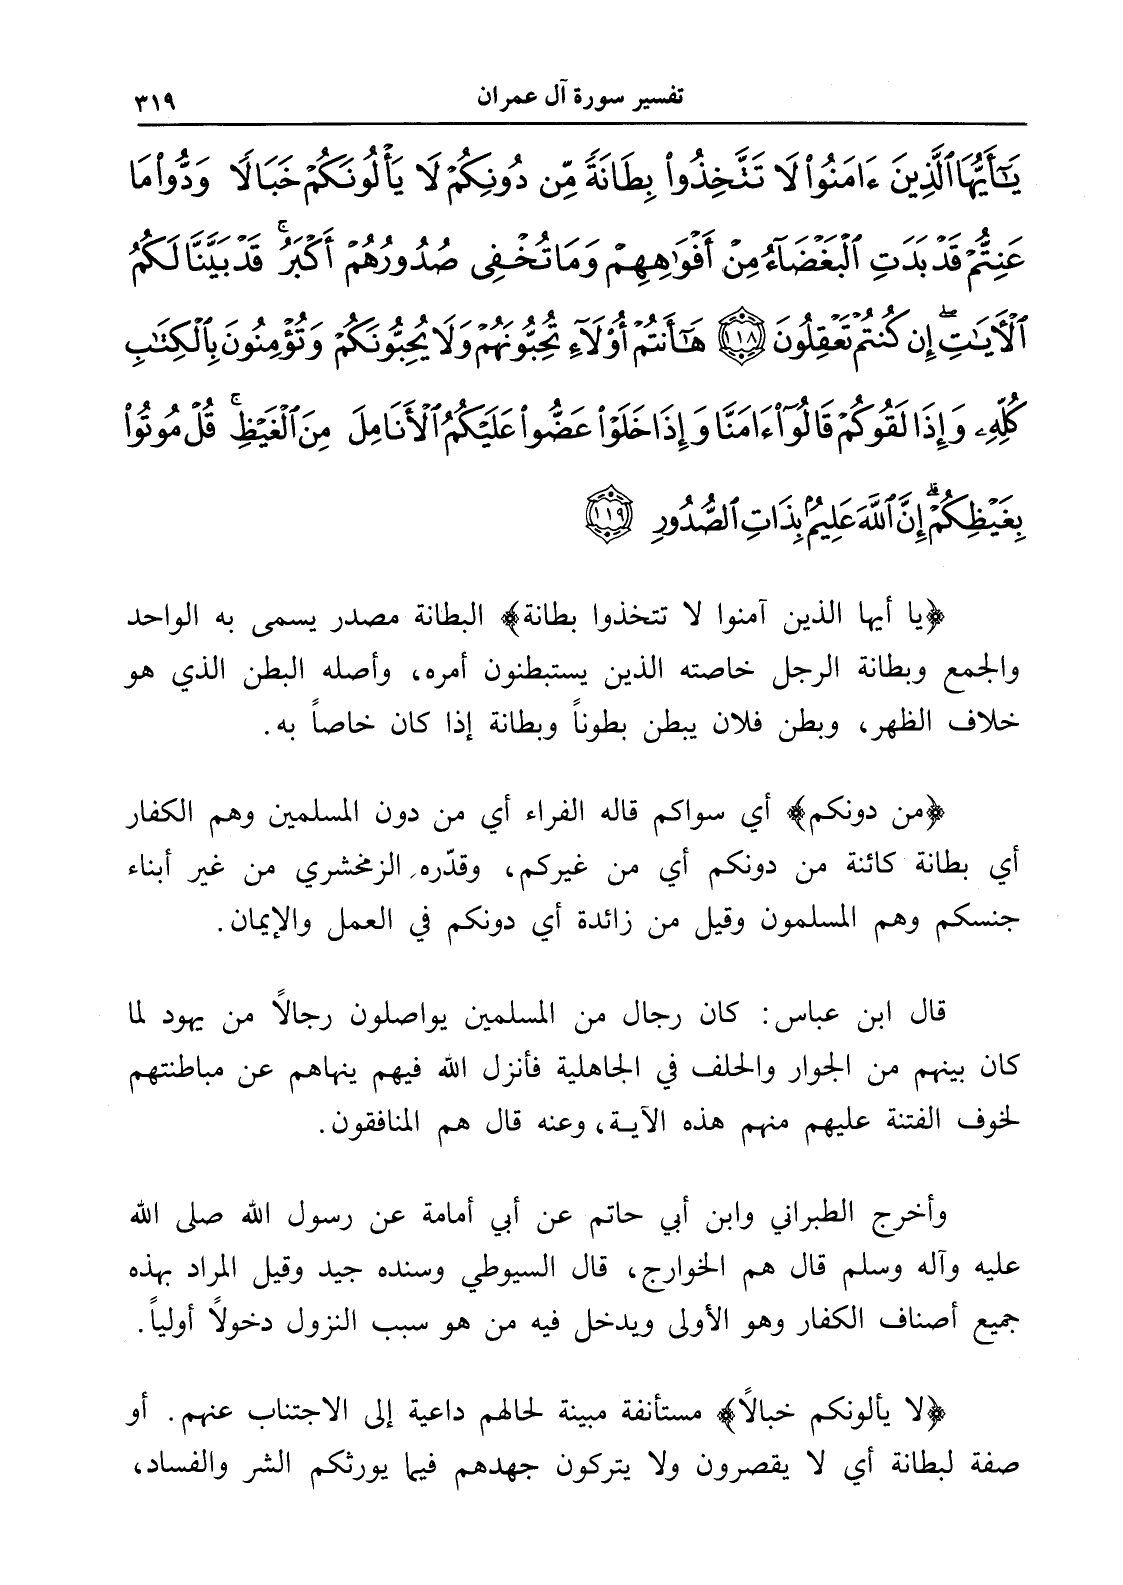 تفسير سورة آل عمران ٣١٩
يَٰٓأَيُّهَا ٱلَّذِينَ ءَامَنُوا۟ لَا تَتَّخِذُوا۟ بِطَانَةً مِّن دُونِكُمْ لَا يَأْلُونَكُمْ خَبَالًا وَدُّوا۟ مَا
عَنِتُّمْ قَدْ بَدَتِ ٱلْبَغْضَآءُ مِنْ أَفْوَٰهِهِمْ وَمَا تُخْفِى صُدُورُهُمْ أَكْبَرُ ۚ قَدْ بَيَّنَّا لَكُمُ
ٱلْأَيَٰتِ ۖ إِن كُنتُمْ تَعْقِلُونَ ١١٨ هَٰٓأَنتُمْ أُو۟لَآءِ تُحِبُّونَهُمْ وَلَا يُحِبُّونَكُمْ وَتُؤْمِنُونَ بِٱلْكِتَٰبِ
كُلِّهِۦ وَإِذَا لَقُوكُمْ قَالُوٓا۟ ءَامَنَّا وَإِذَا خَلَوْا۟ عَضُّوا۟ عَلَيْكُمُ ٱلْأَنَامِلَ مِنَ ٱلْغَيْظِ ۚ قُلْ مُوتُوا۟
بِغَيْظِكُمْ ۗ إِنَّ ٱللَّهَ عَلِيمٌۢ بِذَاتِ ٱلصُّدُورِ ١١٩
﴿يا أيها الذين آمنوا لا تتخذوا بطانة﴾ البطانة مصدر يسمى به الواحد
والجمع وبطانة الرجل خاصته الذين يستبطنون أمره، وأصله البطن الذي هو
خلاف الظهر، وبطن فلان يبطن بطوناً وبطانة إذا كان خاصاً به.
﴿من دونكم﴾ أي سواكم قاله الفراء أي من دون المسلمين وهم الكفار
أي بطانة كائنة من دونكم أي من غيركم، وقدّره الزمخشري من غير أبناء
جنسكم وهم المسلمون وقيل من زائدة أي دونكم في العمل والإيمان.
قال ابن عباس: كان رجال من المسلمين يواصلون رجالاً من يهود لما
كان بينهم من الجوار والحلف في الجاهلية فأنزل الله فيهم ينهاهم عن مباطنتهم
لخوف الفتنة عليهم منهم هذه الآية، وعنه قال هم المنافقون.
وأخرج الطبراني وابن أبي حاتم عن أبي أمامة عن رسول الله صلى الله
عليه وآله وسلم قال هم الخوارج، قال السيوطي وسنده جيد وقيل المراد بهذه
جميع أصناف الكفار وهو الأولى ويدخل فيه من هو سبب النزول دخولاً أولياً.
﴿لا يألونكم خبالاً﴾ مستأنفة مبينة لحالهم داعية إلى الاجتناب عنهم. أو
صفة لبطانة أي لا يقصرون ولا يتركون جهدهم فيما يورثكم الشر والفساد،